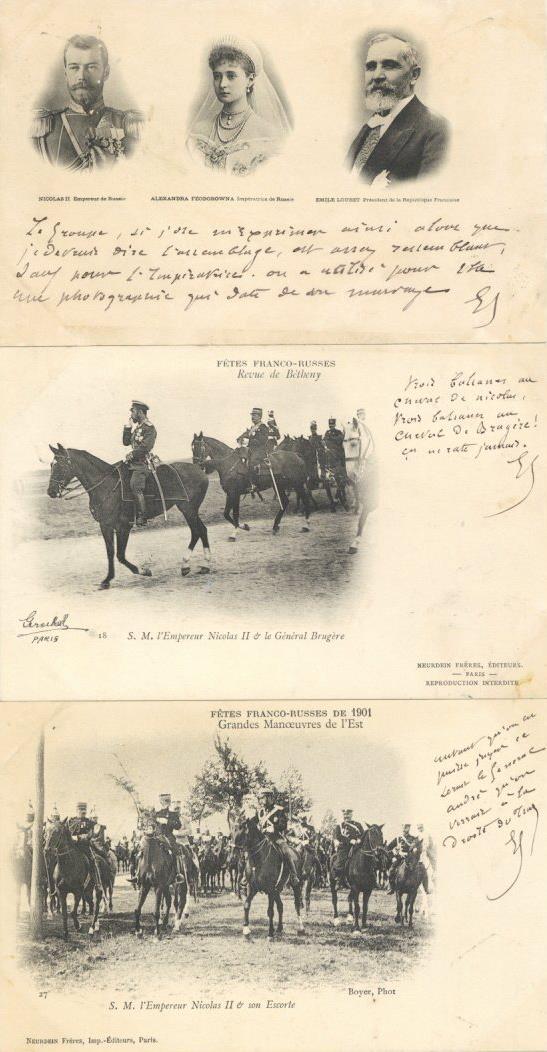 NICOLAS II Empereur de Russie
ALEXANDRA FÉODOROWNA Impératrice de Russie
EMILE LOUBET Président de la République Française
Le Groupe, si j'ose m'exprimer ainsi alors que
je devrais dire l'assemblage, est assez ressemblant,
Sauf pour l'Impératrice. on a utilisé pour cela
une photographie qui date de son mariage
FÊTES FRANCO-RUSSES
Revue de Bétheny
Trois balzanes au
cheval de nicolas,
Trois balzanes au
cheval de Brugère!
ça ne rate jamais.
Gerschel
PARIS
18 S. M. l'Empereur Nicolas II & le Général Brugère
NEURDEIN FRÈRES, ÉDITEURS.
— PARIS —
REPRODUCTION INTERDITE
FÊTES FRANCO-RUSSES DE 1901
Grandes Manœuvres de l'Est
autant qu'on en
puisse juger ce
serait le General
andré qu'on
verrait à la
Droite du
27
Boyer, Phot
S. M. l'Empereur Nicolas II & son Escorte
NEURDEIN Frères, Imp.-Éditeurs, Paris.